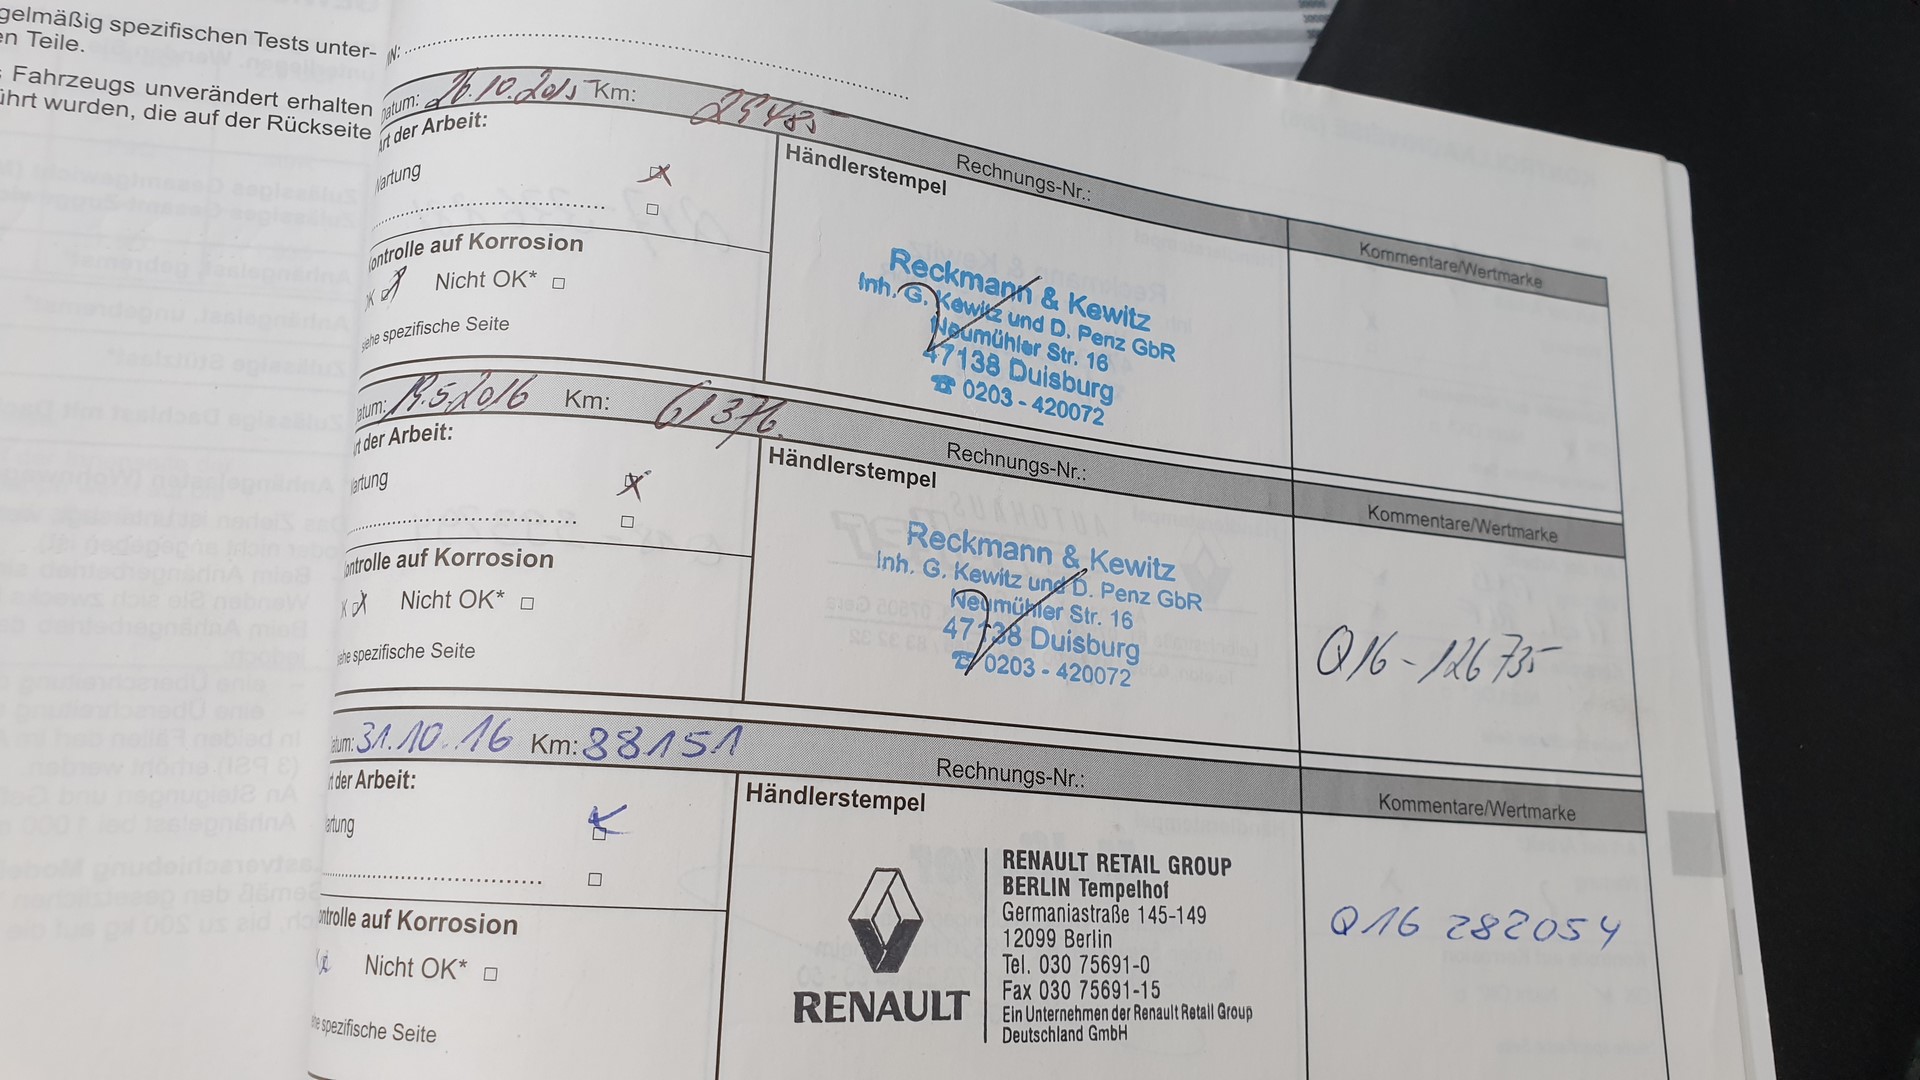 gelmäßig spezifischen Tests unter-
en Teile.
Fahrzeugs unverändert erhalten
ührt wurden, die auf der Rückseite
IN:
Datum: 26.10.2015 Km: 29485
Art der Arbeit:
Rechnungs-Nr.:
Kommentare/Wertmarke
Händlerstempel
Wartung
Kontrolle auf Korrosion
OK Nicht OK*
siehe spezifische Seite
Reckmann & Kewitz
Inh. G. Kewitz und D. Penz GbR
Neumühler Str. 16
47138 Duisburg
☎ 0203 - 420072
Datum: 19.5.2016 Km: 61376.
Art der Arbeit:
Rechnungs-Nr.:
Kommentare/Wertmarke
Händlerstempel
Wartung
Kontrolle auf Korrosion
K Nicht OK*
siehe spezifische Seite
Reckmann & Kewitz
Inh. G. Kewitz und D. Penz GbR
Neumühler Str. 16
47138 Duisburg
☎ 0203 - 420072
Q16 - 126735
atum: 31.10.16 Km: 88151
rt der Arbeit:
Rechnungs-Nr.:
Kommentare/Wertmarke
Händlerstempel
artung
ontrolle auf Korrosion
Nicht OK*
he spezifische Seite
RENAULT
RENAULT RETAIL GROUP
BERLIN Tempelhof
Germaniastraße 145-149
12099 Berlin
Tel. 030 75691-0
Fax 030 75691-15
Ein Unternehmen der Renault Retail Group
Deutschland GmbH
Q16 282054